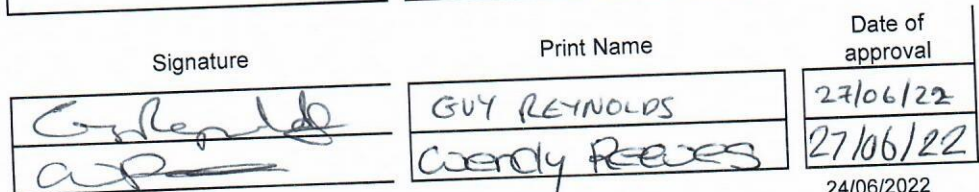 Signature Print Name Date of approval
Guy Reynolds GUY REYNOLDS 27/06/22
Wendy Reeves 27/06/22
24/06/2022